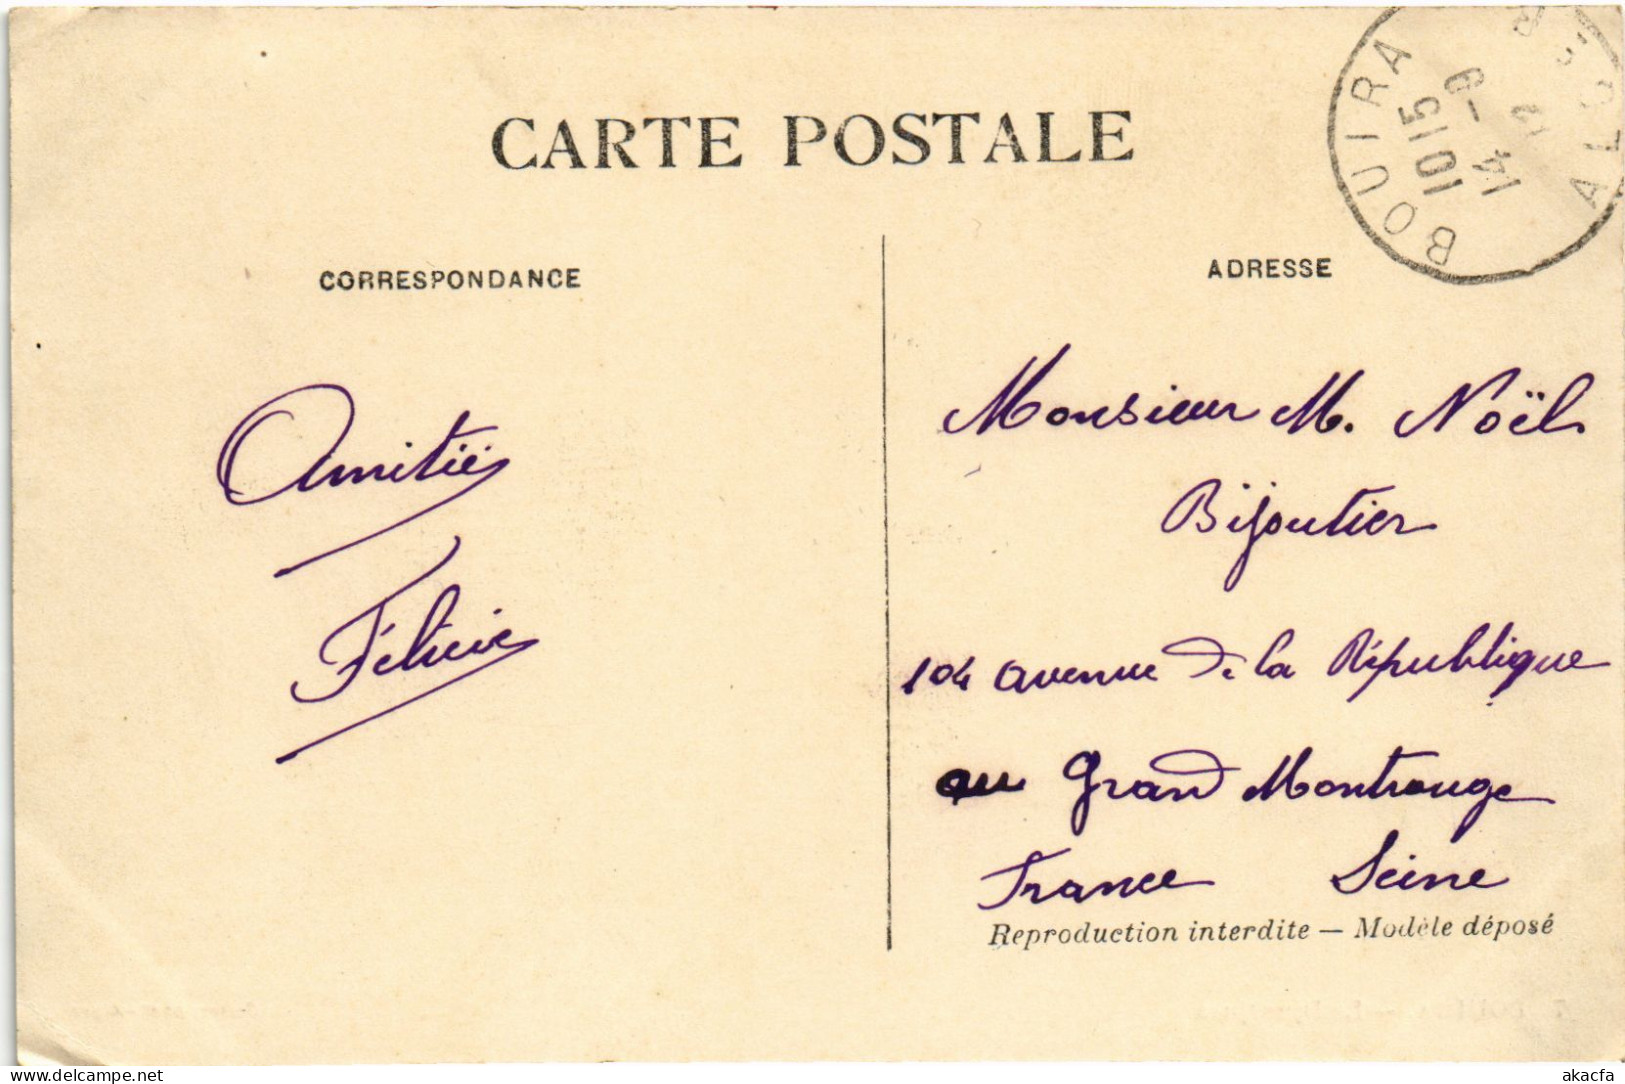 CARTE POSTALE
BOUIRA
ALGER
10 15
14 -9
CORRESPONDANCE
ADRESSE
Amitié
Félicie
Monsieur M. Noël
Bijoutier
104 avenue de la République
au Grand Montrouge
France Seine
Reproduction interdite — Modèle déposé
delcampe.net
akacfa